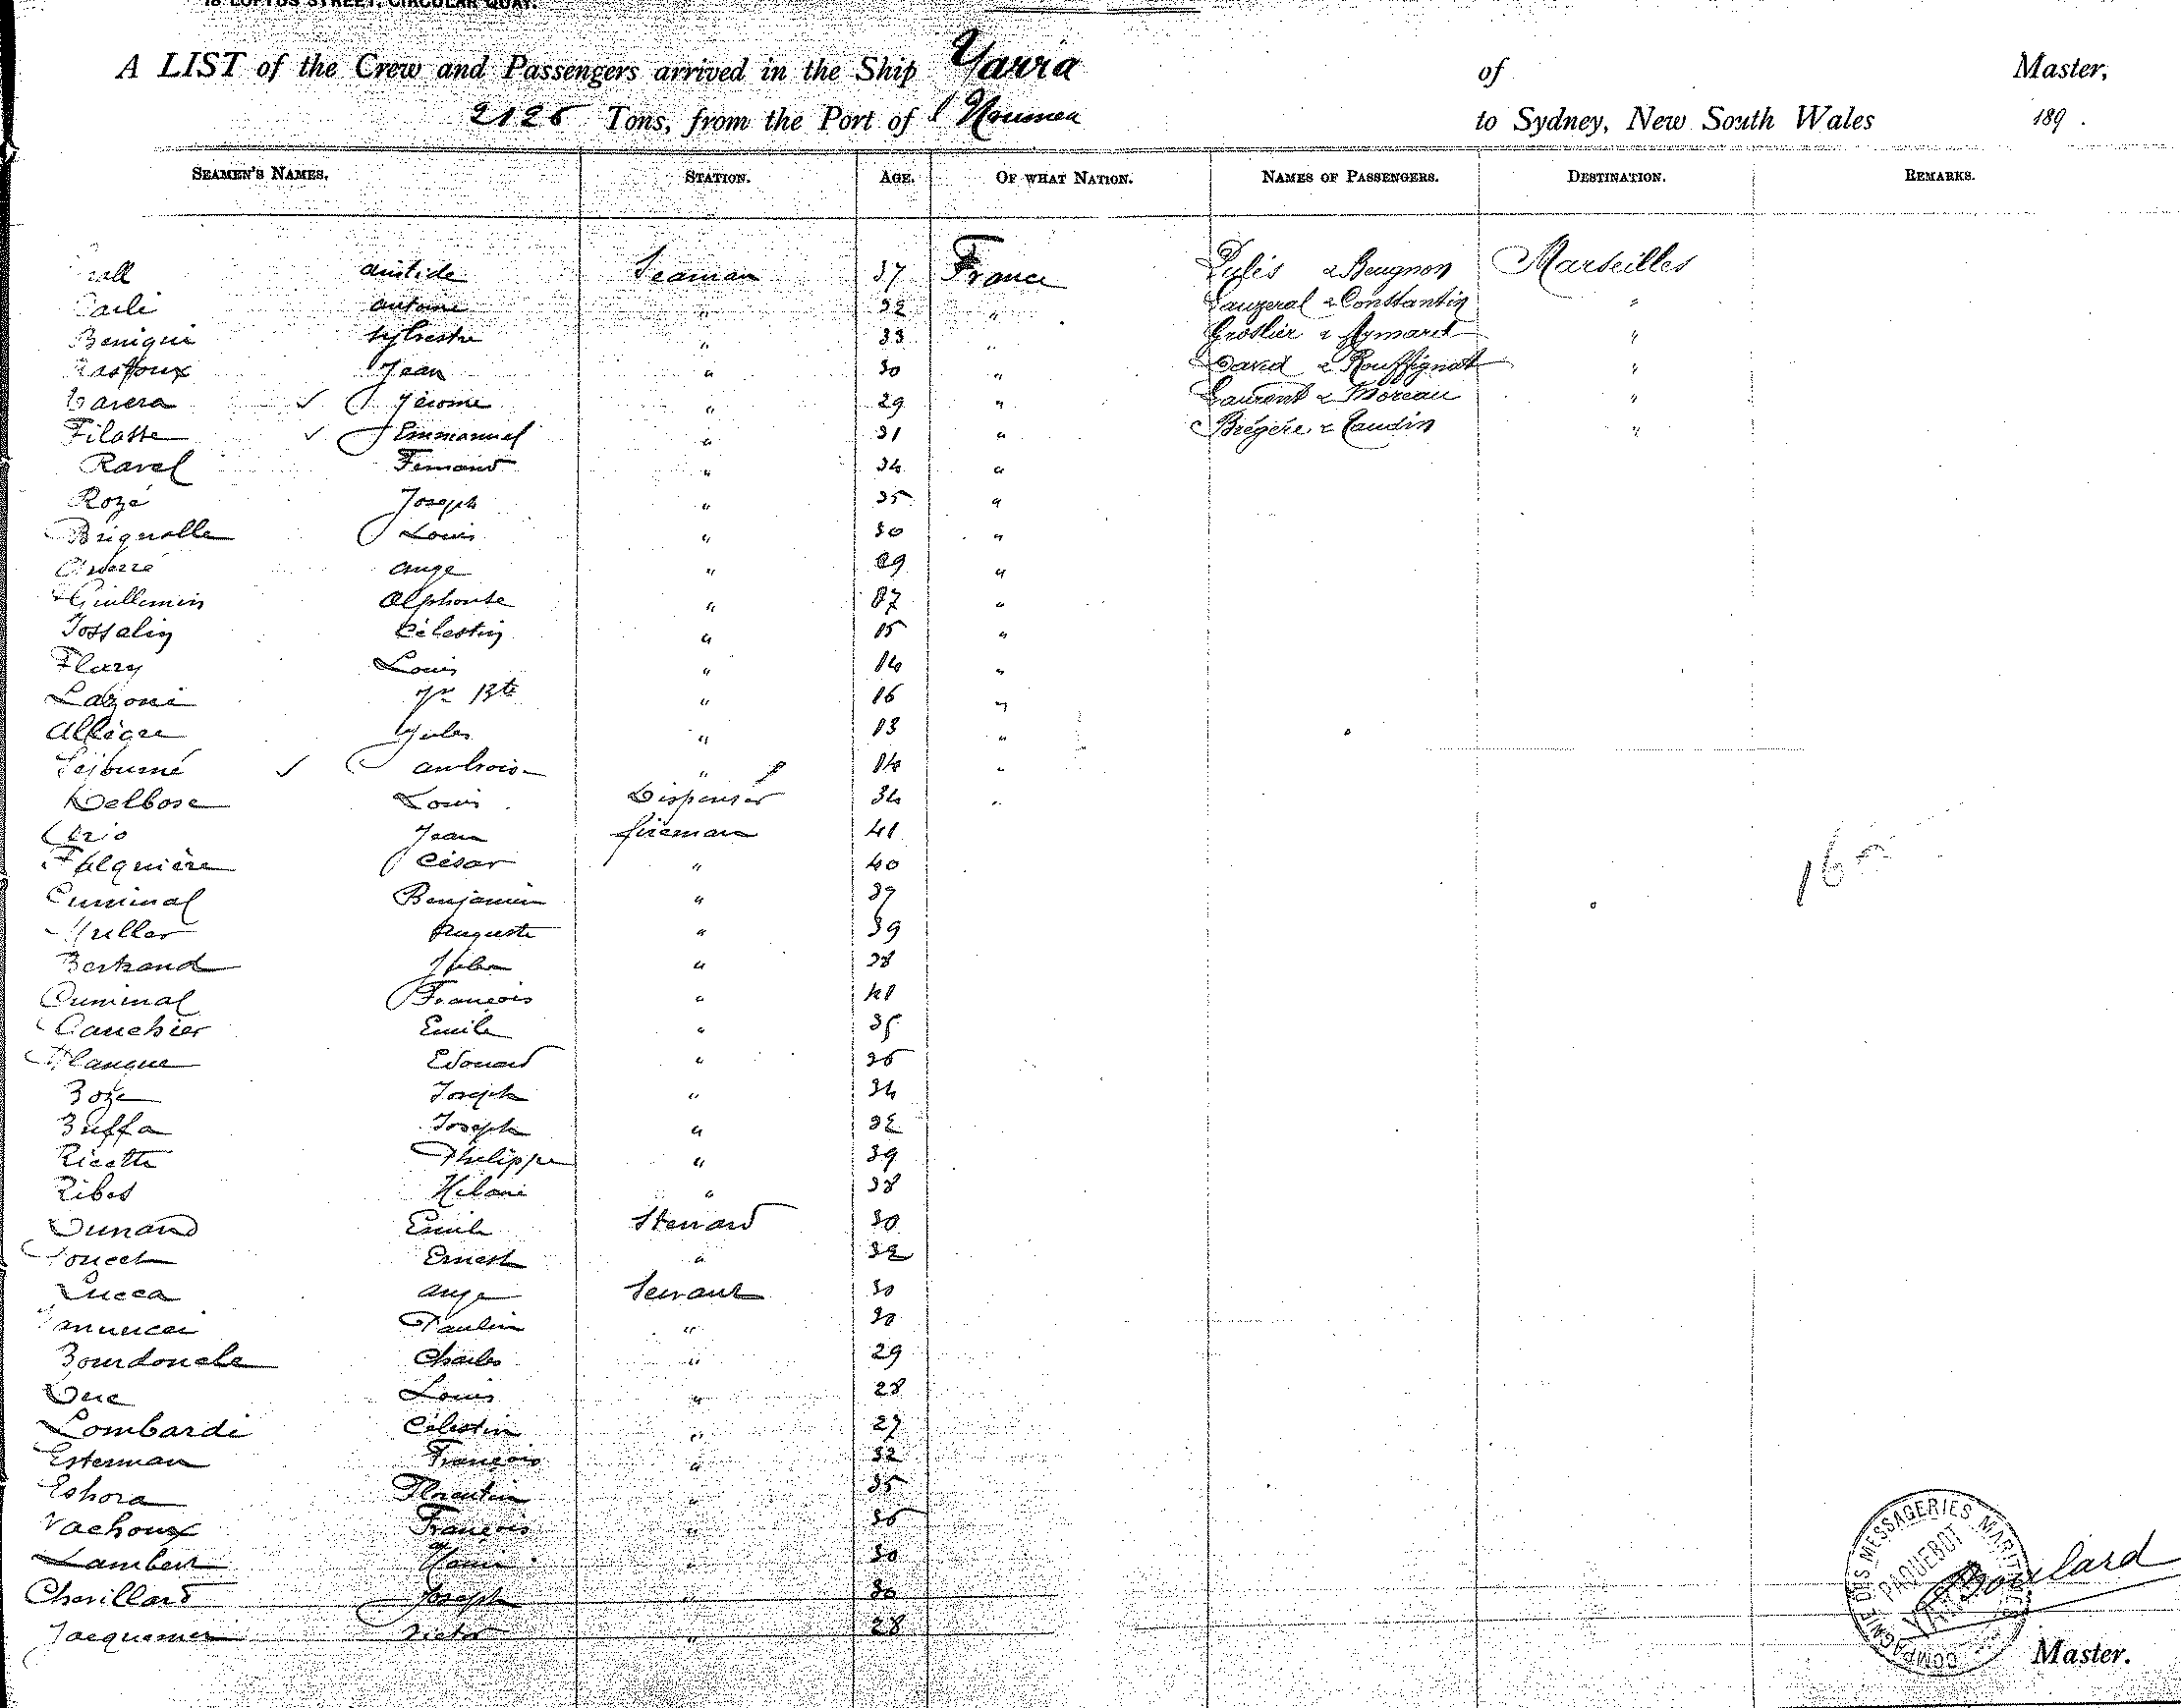 18 LOFTUS STREET, CIRCULAR QUAY.
A LIST of the Crew and Passengers arrived in the Ship Yarra of Master,
2126 Tons, from the Port of Noumea to Sydney, New South Wales 189 .
SEAMEN'S NAMES. STATION. AGE. OF WHAT NATION. NAMES OF PASSENGERS. DESTINATION. REMARKS.
aristide Seaman 37 France Pulès & Beugnon Marseilles
Carli antoine " 32 " Lauzeral & Constantin "
Benigni sylvestre " 33 " Grollier & Aymard "
Rastoux Jean " 30 " David & Rouffignat "
Cavera ✓ Jérome " 29 " Laurent & Moreau "
Filatte ✓ Emmanuel " 31 " Brégère & Caudin "
Ravel Fernand " 34 "
Rozé Joseph " 35 "
Brignolle Louis " 30 "
ange " 29 "
Guillemin Alphonse " 17 "
Jossalin Célestin " 15 "
Flary Louis " 14 "
Lazoni Jn Bte " 16 "
Allègre Jules " 13 "
Séjourné ✓ ambrois " 14 "
Delbosc Louis Dispenser 34 "
Jean fireman 41
Falquière César " 40
Cuminal Benjamin " 37
Muller Auguste " 39
Bertrand Jules " 38
Cuminal François " 41
Gauchier Emile " 35
Planque Edouard " 36
Boze Joseph " 34
Buffa Joseph " 32
Ricette Philippe " 39
Ribes Hilari " 38
Dunand Emile Steward 30
Poucel Ernest " 32
Lucca ange Servant 30
Vannucci Paulin " 30
Bourdoncle Charles " 29
Duc Louis " 28
Lombardi Célestin " 27
Esterman François " 32
Eshora Florentin " 35
Vachoux François " 36
Lambert " 30
Chevillard Joseph " 30
Jacquemer Victor " 28
COMPAGNIE DES MESSAGERIES MARITIMES
PAQUEBOT
YARRA
Boulard
Master.